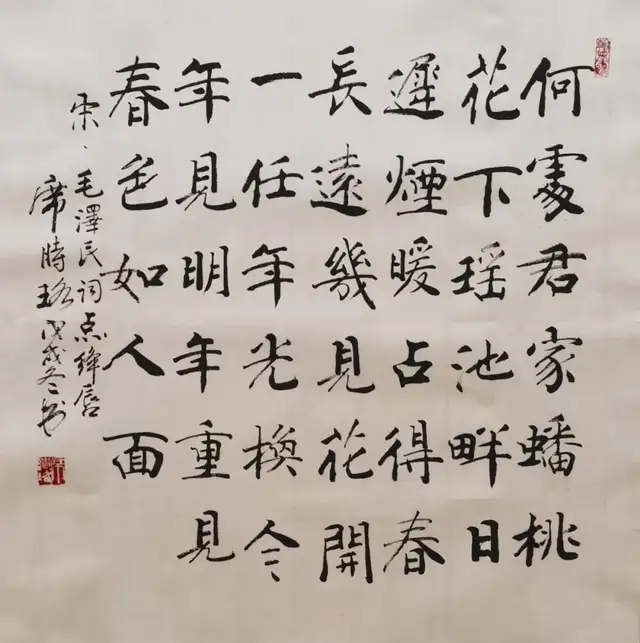 何處君家蟠桃
花下瑶池畔日
遲煙暖占得春
長遠幾見花開
一任年光換今
年見明年重見
春色如人面
宋、毛澤民词点絳唇
席時珞戊戌冬书